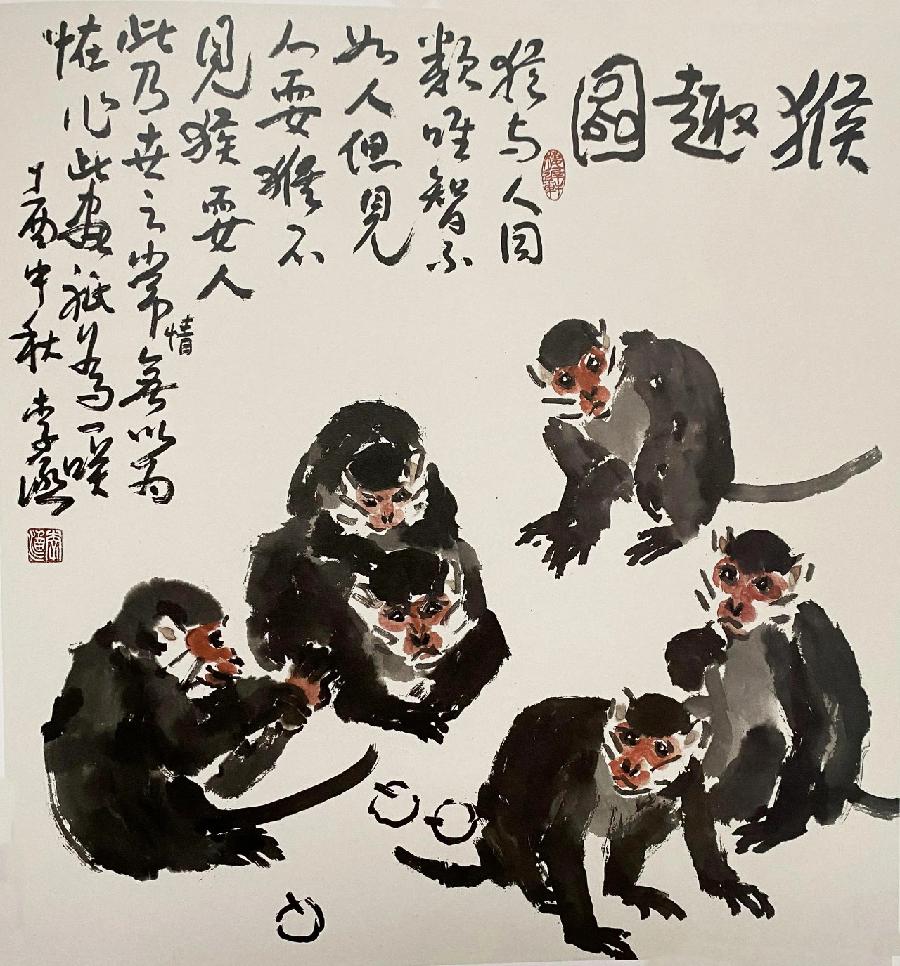 猴趣圖
猴与人同
類唯智不
如人但見
人耍猴不
見猴耍人
此乃世之常情無以为
怪作此畫祇为一咲
丁酉中秋 李